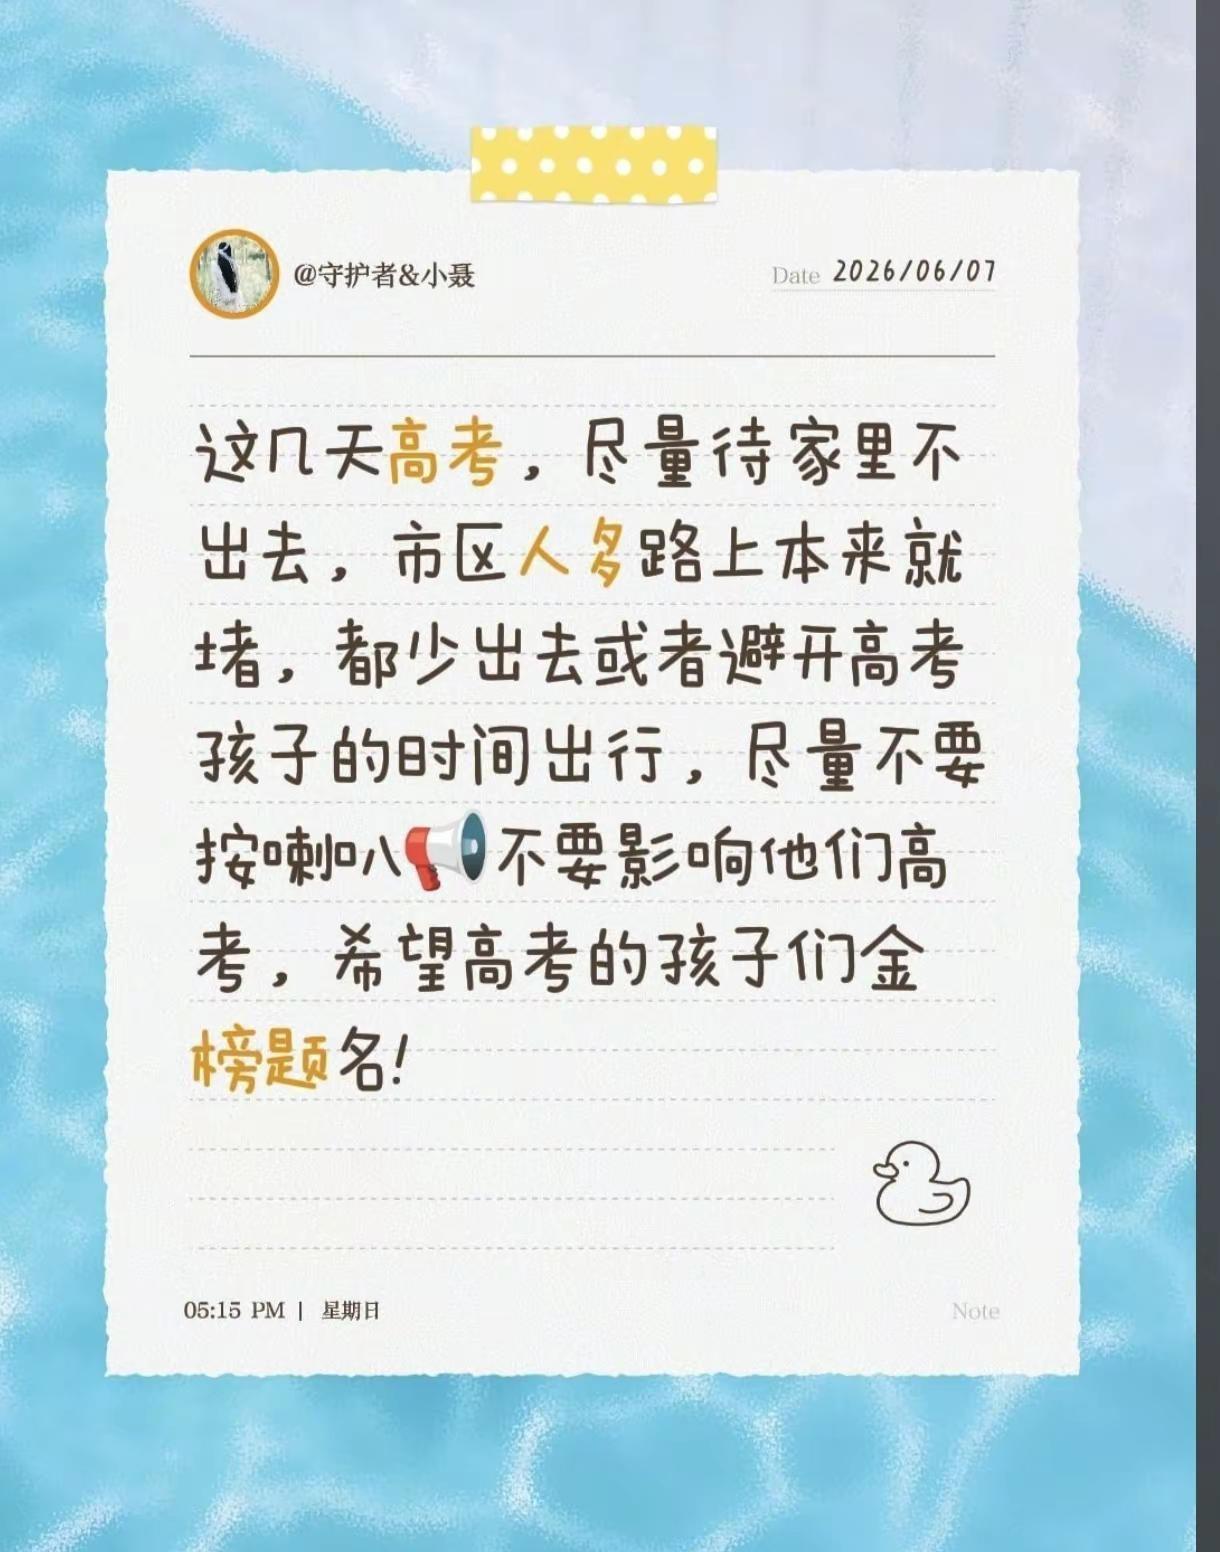 @守护者&小聂
Date 2026/06/07
这几天高考，尽量待家里不
出去，市区人多路上本来就
堵，都少出去或者避开高考
孩子的时间出行，尽量不要
按喇叭📢不要影响他们高
考，希望高考的孩子们金
榜题名！
05:15 PM | 星期日
Note